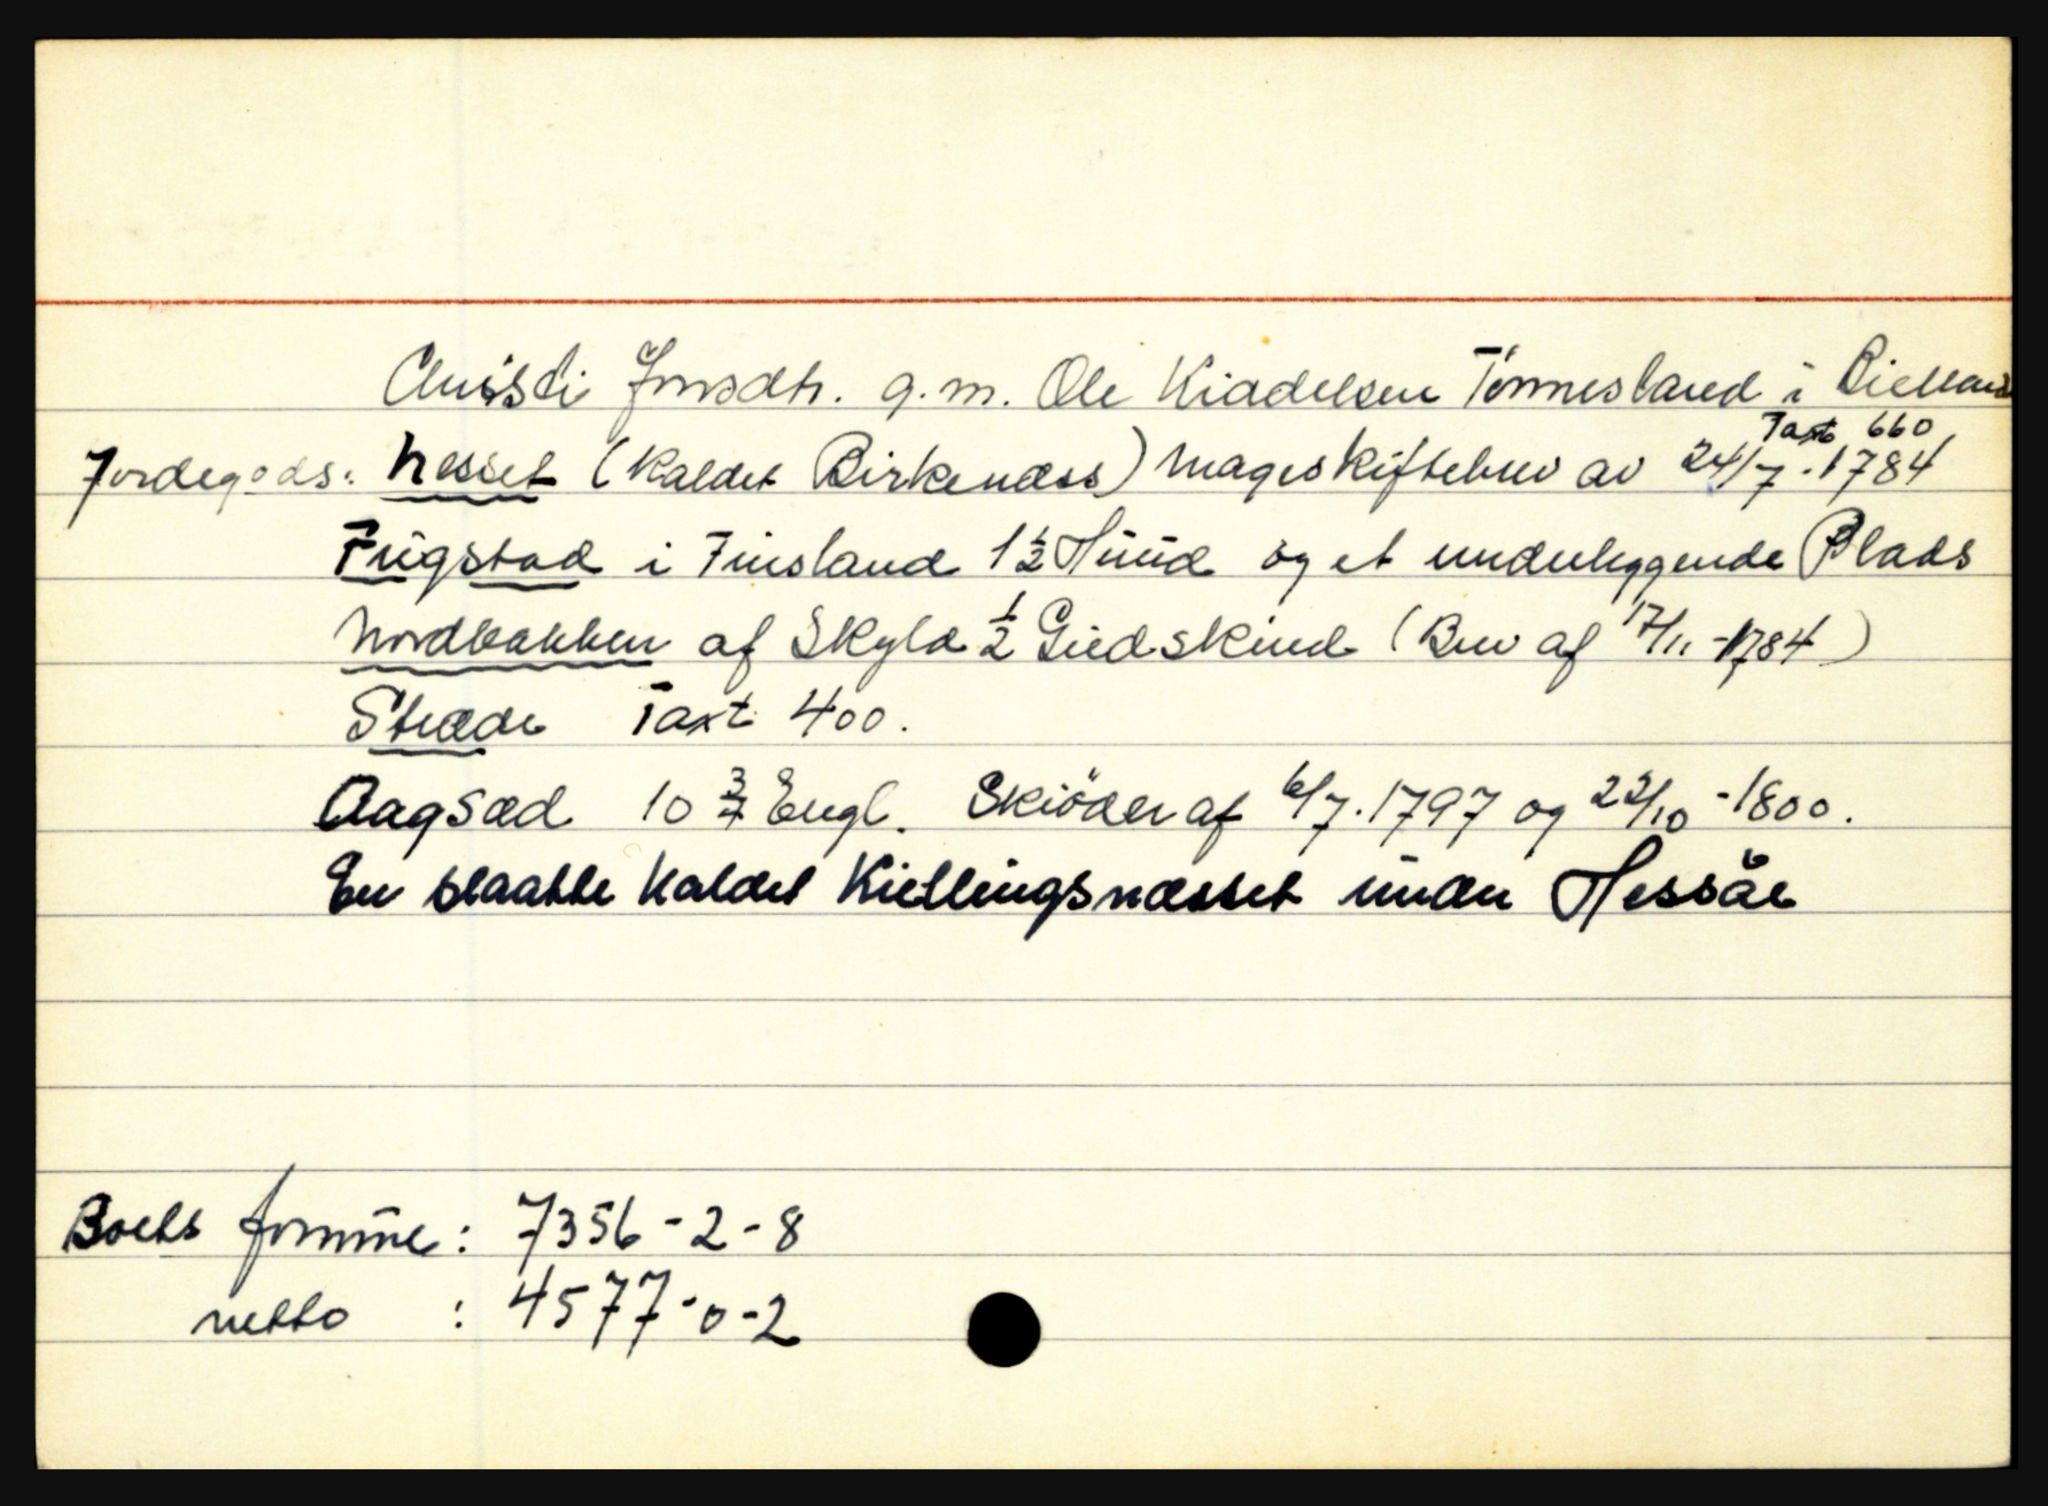 Christi Jonsdtr. g.m. Ole Kiadelsen Tönnesland i Bielland
Taxt 660
Jordegods: Nesset (kaldet Birkenæss) mageskiftebrev av 24/7.1784
Frigstad i Finsland 1 1/2 Huud og et underliggende Plads
Nordbakken af Skyld 1/2 Giedskind (Brev af 17/11-1784)
Stræde Taxt 400.
Aagsæd 10 3/7 Engl. Skiöder af 6/7.1797 og 22/10-1800.
En slaatte kaldet Kiellingsnæsset under Hessåe
Boets formue: 7356-2-8
netto : 4577-0-2